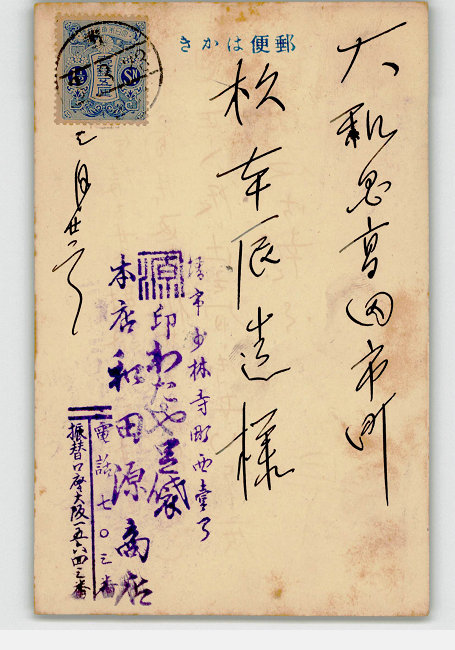 郵便はかき
大和国高田市町
杉本辰造様
三月廿二日
堺市少林寺町西壹丁
源
印わたや足袋
本店和田源商店
電話七〇三番
振替口座大阪一五六四三番